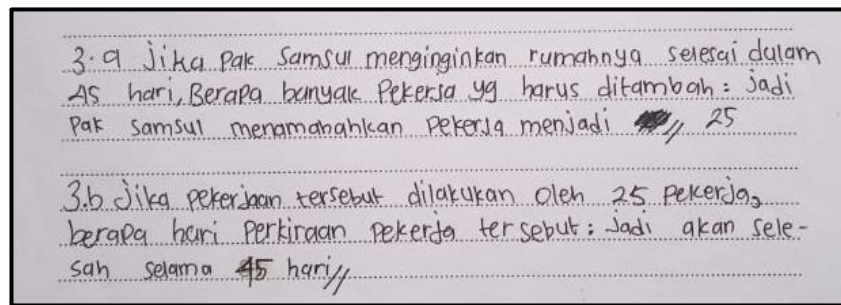 3.a Jika Pak Samsul menginginkan rumahnya selesai dalam
45 hari, Berapa banyak Pekerja yg harus ditambah : jadi
Pak Samsul menamabahkan Pekerja menjadi // 25
3.b Jika pekerjaan tersebut dilakukan oleh 25 pekerja,
berapa hari Perkiraan pekerja tersebut : Jadi akan sele-
sah selama 45 hari//